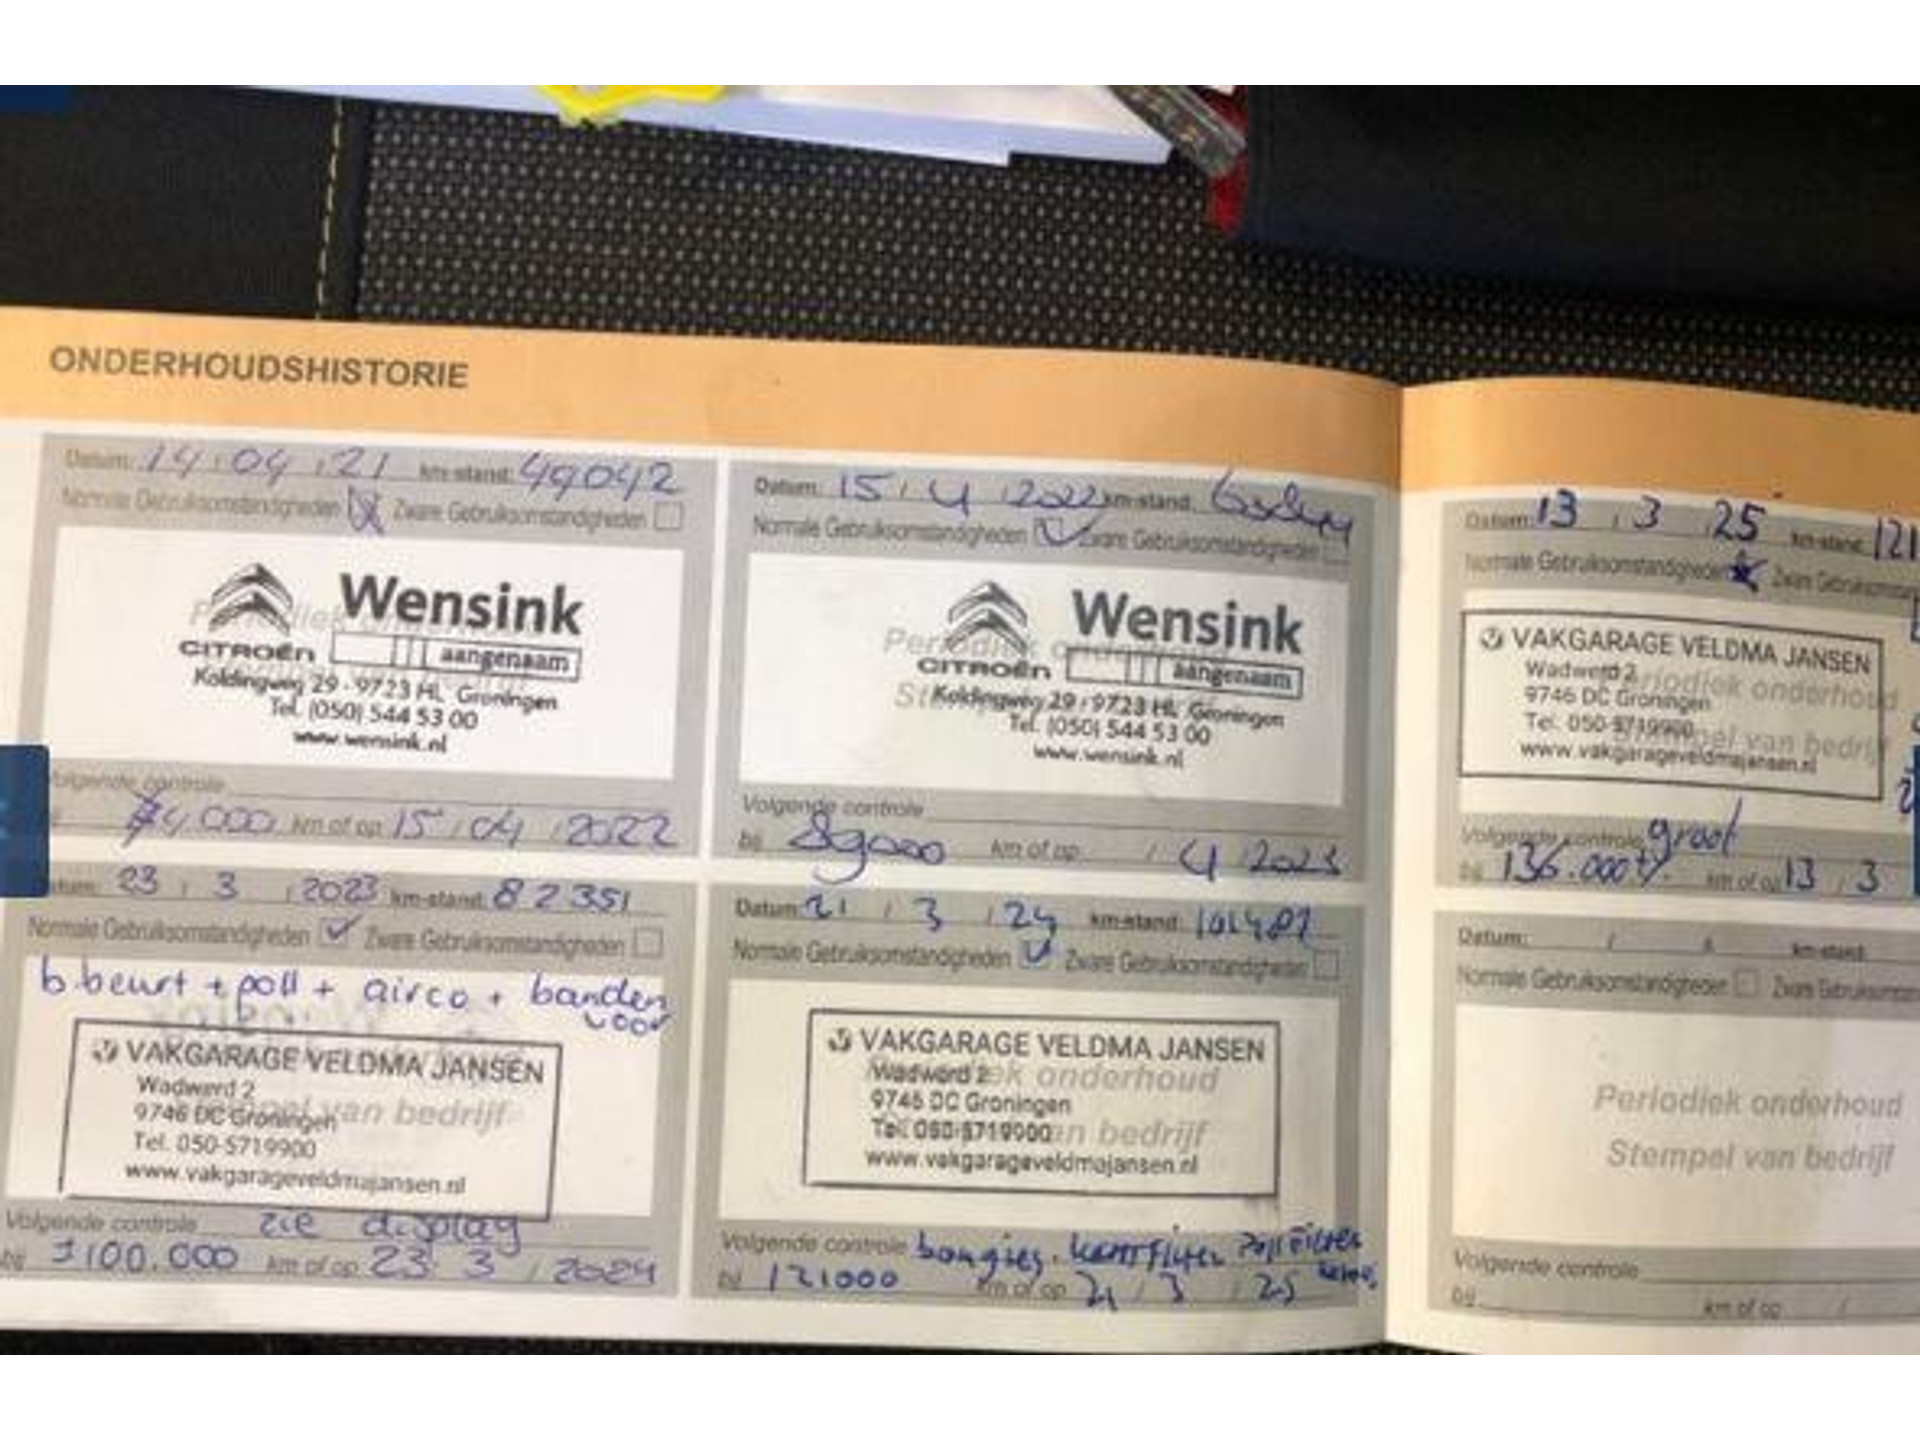 ONDERHOUDSHISTORIE
Datum: 14 / 04 / 21 km-stand: 49042
Normale Gebruiksomstandigheden Zware Gebruiksomstandigheden
Wensink
CITROËN aangenaam
Koldingweg 29 - 9723 HL Groningen
Tel. (050) 544 53 00
www.wensink.nl
Volgende controle
74.000 km of op 15 / 04 / 2022
Datum: 15 / 4 / 2022 km-stand:
Normale Gebruiksomstandigheden Zware Gebruiksomstandigheden
Periodiek
Wensink
CITROËN aangenaam
Koldingweg 29 - 9723 HL Groningen
Tel. (050) 544 53 00
www.wensink.nl
Volgende controle
bij 89000 km of op / 4 / 2023
Datum: 23 / 3 / 2023 km-stand: 82351
Normale Gebruiksomstandigheden Zware Gebruiksomstandigheden
b.beurt + poll + airco + banden
voor
VAKGARAGE VELDMA JANSEN
Wadwerd 2
9746 DC Groningen
van bedrijf
Tel. 050-5719900
www.vakgarageveldmajansen.nl
Volgende controle zie display
bij 100.000 km of op 23 / 3 / 2024
Datum: 21 / 3 / 24 km-stand: 101487
Normale Gebruiksomstandigheden Zware Gebruiksomstandigheden
VAKGARAGE VELDMA JANSEN
Wadwerd 2 onderhoud
9746 DC Groningen
Tel. 050-5719900 bedrijf
www.vakgarageveldmajansen.nl
Volgende controle bougies.
bij 121000 km of op 21 / 3 / 25
Datum: 13 / 3 / 25 km-stand: 121
Normale Gebruiksomstandigheden Zware
VAKGARAGE VELDMA JANSEN
Wadwerd 2
Periodiek onderhoud
9746 DC Groningen
Tel. 050-5719900
Stempel van bedrijf
www.vakgarageveldmajansen.nl
Volgende controle groot
bij 136.000 km of op 13 / 3
Datum: / / km-stand:
Normale Gebruiksomstandigheden Zware
Periodiek onderhoud
Stempel van bedrijf
Volgende controle
bij km of op /